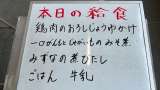 本日の給食
鶏肉のおろししょうゆかけ
一口がんもとじゃがいものみそ煮
みずなの煮びたし
ごはん 牛乳